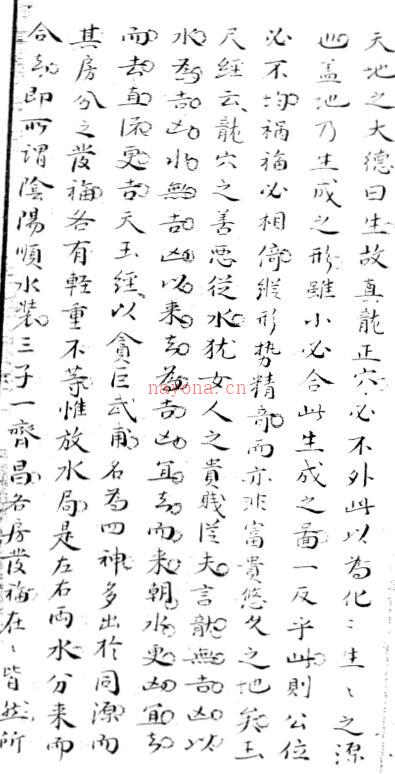 天地之大德曰生故真龍正穴必不外此以為化〻生〻之源
也蓋地乃生成之形雖小必合此生成之啚一反乎此則公位
必不均禍福必相倚縱形势精竒而亦非富貴悠久之地矣玉
尺經云龍穴之善惡從水犹女人之貴賤從夫言龍無吉凶以
水為吉凶水無吉凶以来去為吉凶宜去而来朝水更凶宜去
而去直流更吉天玉經以貪巨武甫名為四神多出於同源而
其房分之發福各有輕重不等惟放水局是左右両水分来而
合去即所謂陰陽順水装三子一齊昌各房發福在〻皆然所
nayona.cn